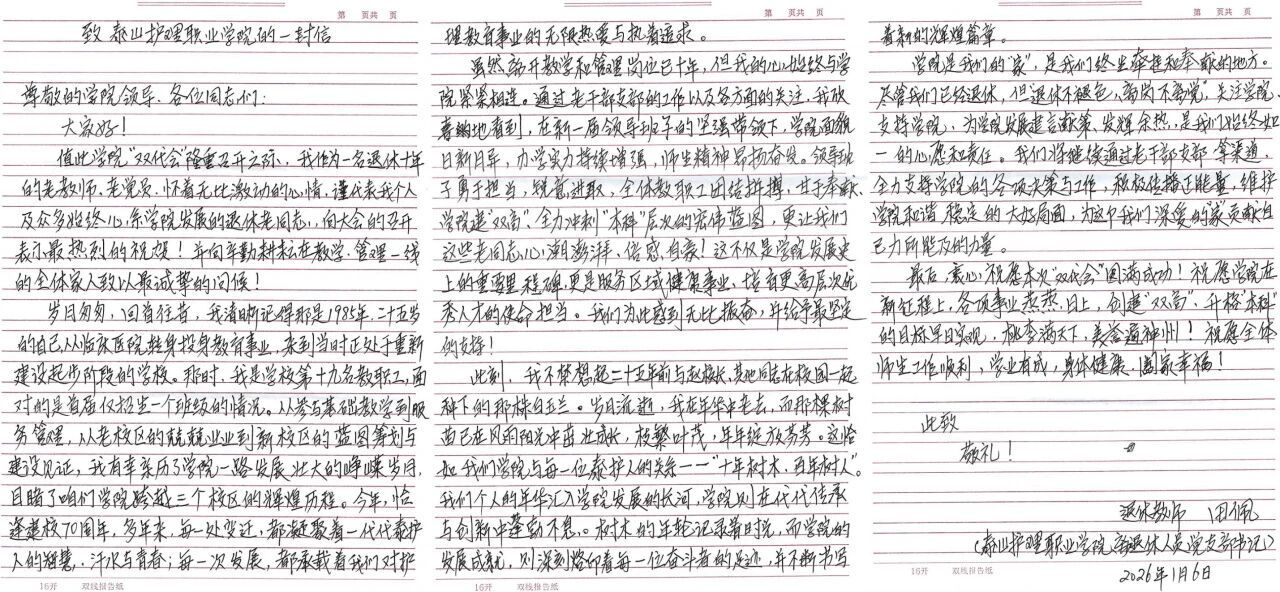 第 页共 页
致 泰山护理职业学院的一封信
尊敬的学院领导、各位同志们：
大家好！
值此学院“双代会”隆重召开之际，我作为一名退休十年
的老教师、老党员，怀着无比激动的心情，谨代表我个人
及众多始终心系学院发展的退休老同志，向大会的召开
表示最热烈的祝贺！并向辛勤耕耘在教学、管理一线
的全体家人致以最诚挚的问候！
岁月匆匆，回首往昔，我清晰记得那是1985年，二十五岁
的自己从临床医院转身投身教育事业，来到当时正处于重新
建设起步阶段的学校。那时，我是学校第十九名教职工，面
对的是首届仅招生一个班级的情况。从参与基础教学到服
务管理，从老校区的兢兢业业到新校区的蓝图筹划与
建设见证，我有幸亲历了学院一路发展壮大的峥嵘岁月，
目睹了咱们学院跨越三个校区的辉煌历程。今年，恰
逢建校70周年，多年来，每一处变迁，都凝聚着一代代泰护
人的智慧、汗水与青春；每一次发展，都承载着我们对护
16开 双线报告纸
第 页共 页
理教育事业的无限热爱与执着追求。
虽然离开教学和管理岗位已十年，但我的心始终与学
院紧紧相连。通过老干部支部的工作以及各方面的关注，我欣
喜的地看到，在新一届领导班子的坚强带领下，学院面貌
日新月异，办学实力持续增强，师生精神昂扬奋发。领导班
子勇于担当，锐意进取，全体教职工团结拼搏，甘于奉献，
学院建“双高”、全力冲刺“本科”层次的宏伟蓝图，更让我们
这些老同志心潮澎湃、倍感自豪！这不仅是学院发展史
上的重要里程碑，更是服务区域健康事业、培育更高层次优
秀人才的使命担当。我们为此感到无比振奋，并给予最坚定
的支持！
此刻，我不禁想起二十五年前与赵校长、其他同志在校园一起
种下的那株白玉兰。岁月流逝，我在年华中老去，而那棵树
苗已在风雨阳光中茁壮成长，枝繁叶茂，年年绽放芬芳。这恰
如我们学院与每一位泰护人的关系——“十年树木，百年树人”。
我们个人的年华汇入学院发展的长河，学院则在代代传承
与创新中蓬勃不息。树木的年轮记录着时光，而学院的
发展成就，则深刻烙印着每一位奋斗者的足迹，并不断书写
16开 双线报告纸
第 页共 页
着新的辉煌篇章。
学院是我们的“家”，是我们终生牵挂和奉献的地方。
尽管我们已经退休，但“退休不褪色，离岗不离党”，关注学院、
支持学院、为学院发展建言献策、发挥余热，是我们始终如
一的心愿和责任。我们将继续通过老干部支部等渠道，
全力支持学院的各项决策与工作，积极传播正能量，维护
学院和谐稳定的大好局面，为这个我们深爱的“家”贡献自
己力所能及的力量。
最后，衷心祝愿本次“双代会”圆满成功！祝愿学院在
新征程上，各项事业蒸蒸日上，创建“双高”、升格“本科”
的目标早日实现，桃李满天下，美誉遍神州！祝愿全体
师生工作顺利，学业有成，身体健康，阖家幸福！
此致
敬礼！
退休教师 田佩
（泰山护理职业学院离退休人员党支部书记）
2026年1月6日
16开 双线报告纸